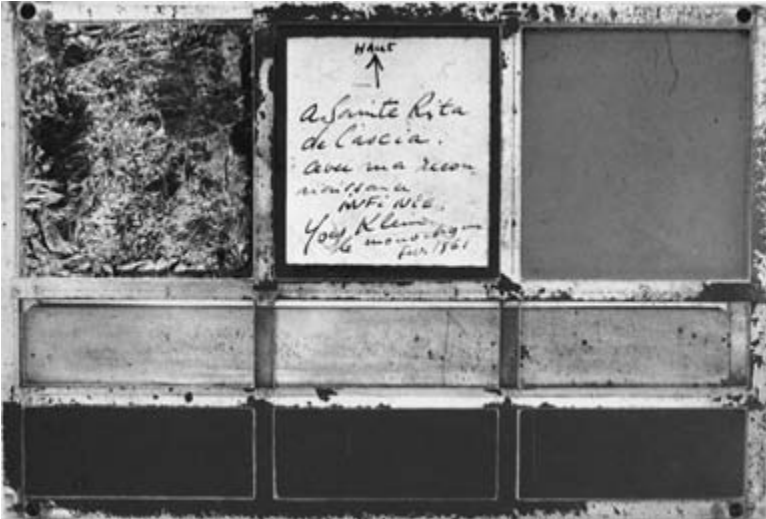 HAUT
A Sainte Rita
de Cascia.
avec ma recon
naissance
INFINIE.
Yves Klein
le monochrome
Fev. 1961